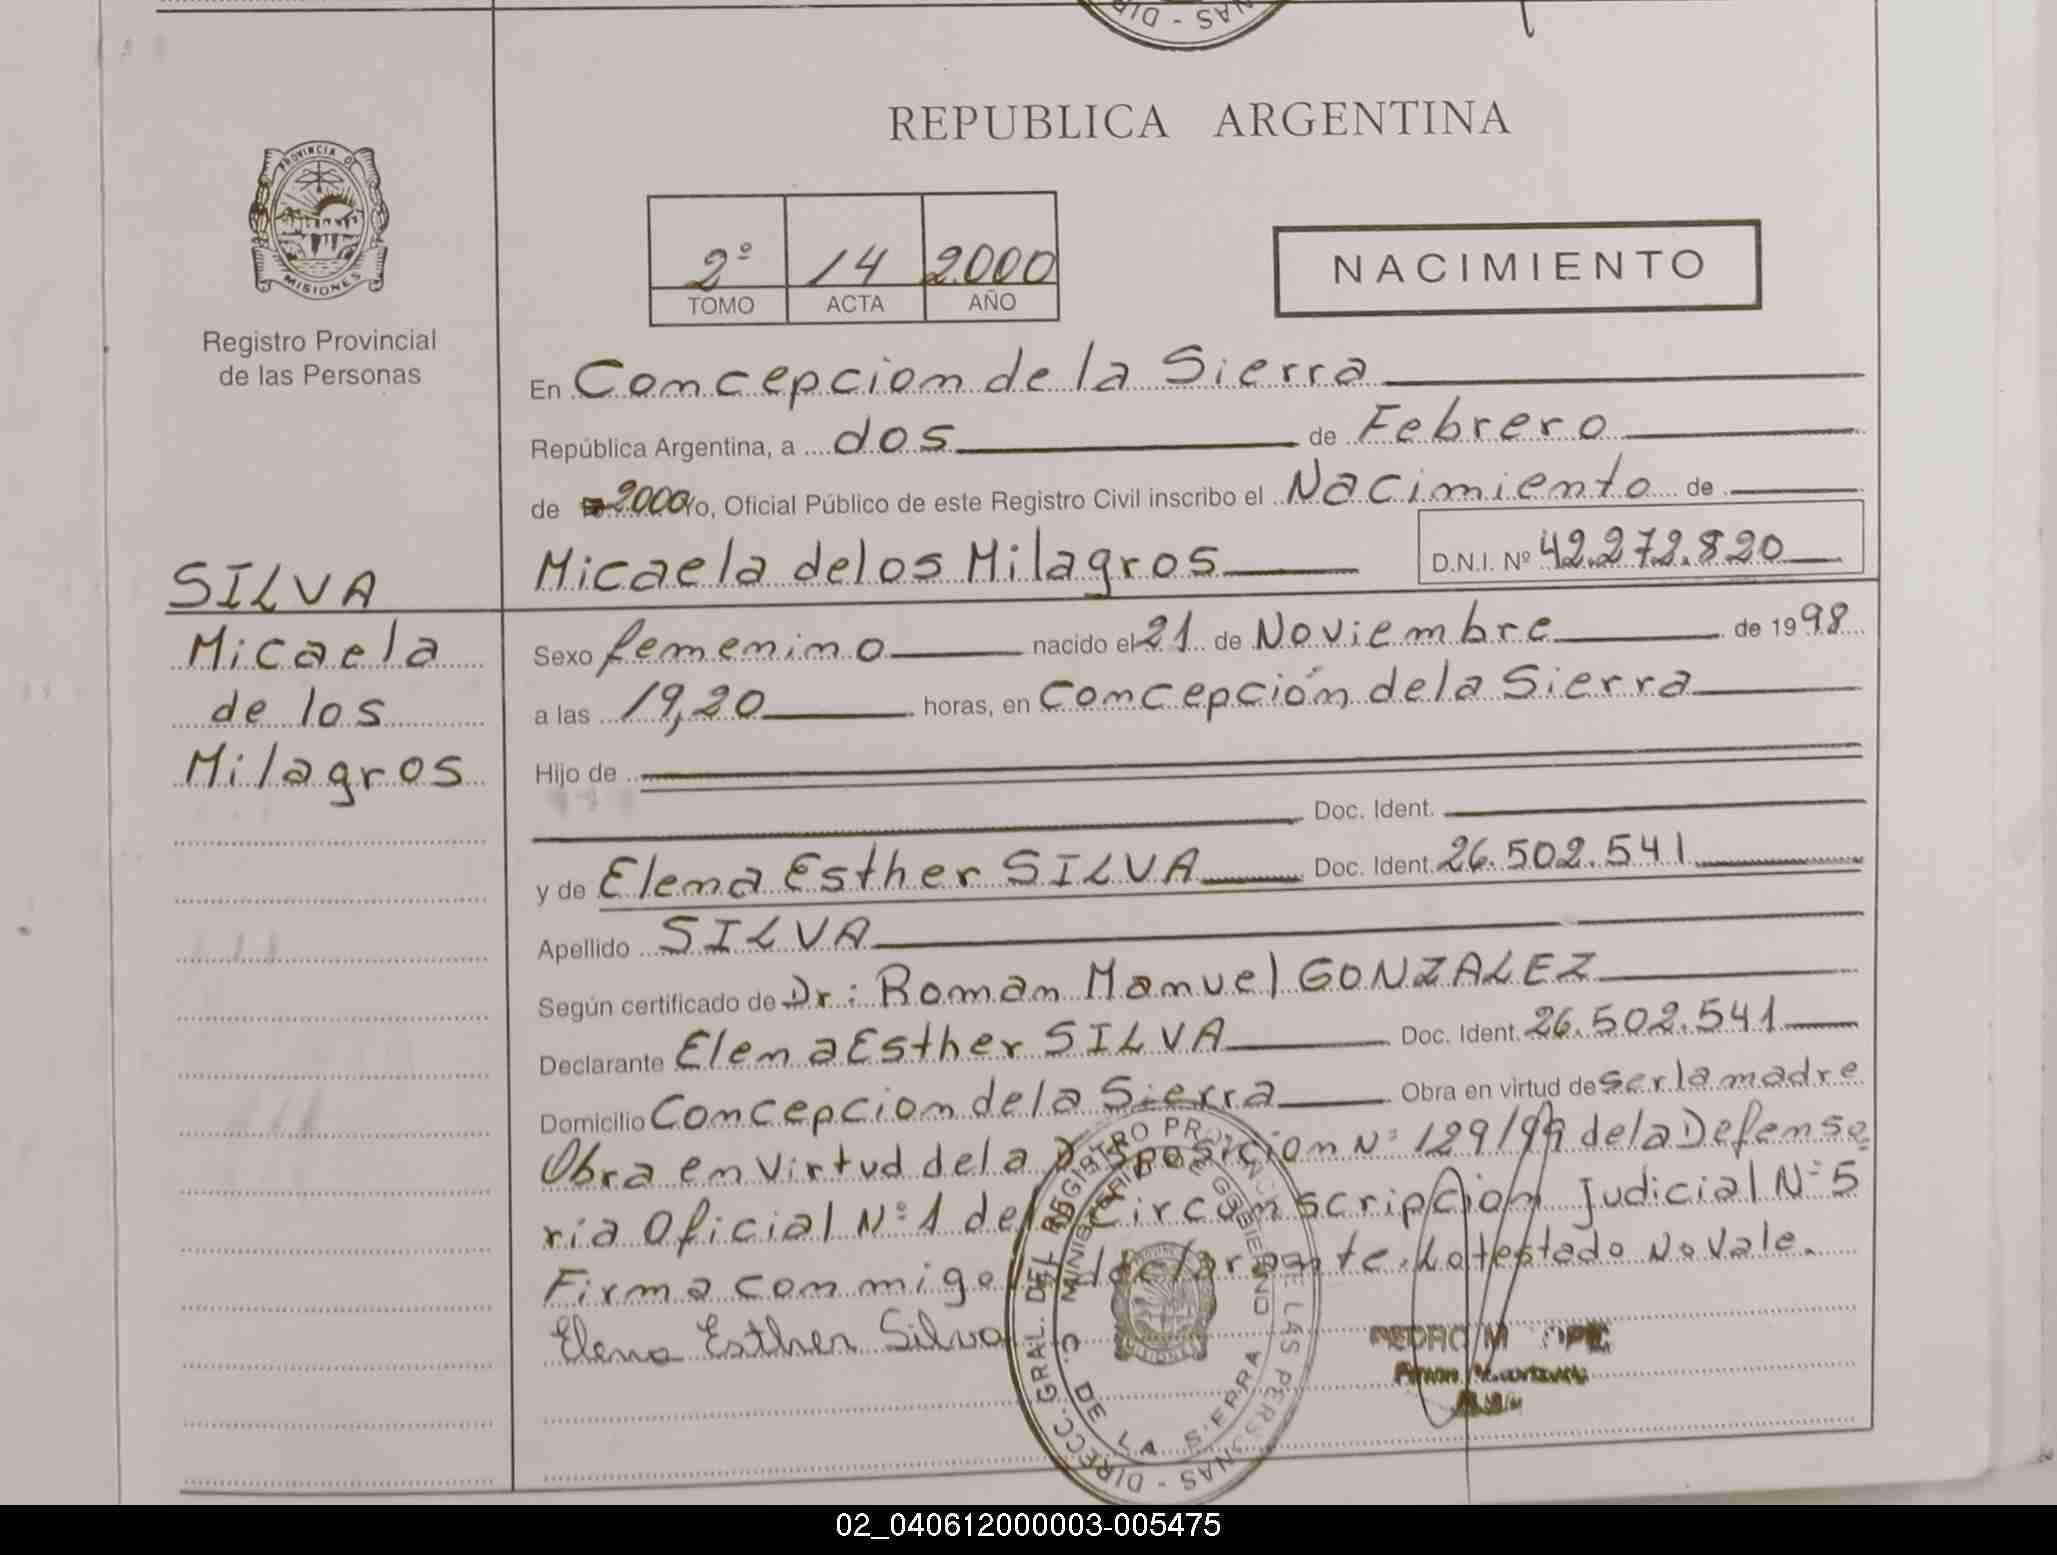 DIR - NAS
REPUBLICA ARGENTINA
PROVINCIA DE
MISIONES
2º 14 2.000
TOMO ACTA AÑO
NACIMIENTO
Registro Provincial
de las Personas
En Concepcion de la Sierra
República Argentina, a dos de Febrero
de 2000 Yo, Oficial Público de este Registro Civil inscribo el Nacimiento de
Micaela de los Milagros D.N.I. Nº 42.272.820
SILVA
Micaela
de los
Milagros
Sexo femenino nacido el 21 de Noviembre de 1998
a las 19,20 horas, en Concepción de la Sierra
Hijo de
Doc. Ident.
y de Elena Esther SILVA Doc. Ident. 26.502.541
Apellido SILVA
Según certificado de Dr: Roman Manuel GONZALEZ
Declarante Elena Esther SILVA Doc. Ident. 26.502.541
Domicilio Concepcion de la Sierra Obra en virtud de ser la madre
Obra en virtud de la Disposicion Nº 129/99 de la Defenso
ria Oficial Nº 1 de Circunscripcion Judicial Nº 5
Firma conmigo declarante. Lo testado No Vale.
Elena Esther Silva
DIRECC. GRAL. DEL REGISTRO PROVINC DE LAS PERSONAS
MINISTERIO DE GOBIERNO
C. DE LA SIERRA
MISIONES
PEDRO M
02_040612000003-005475